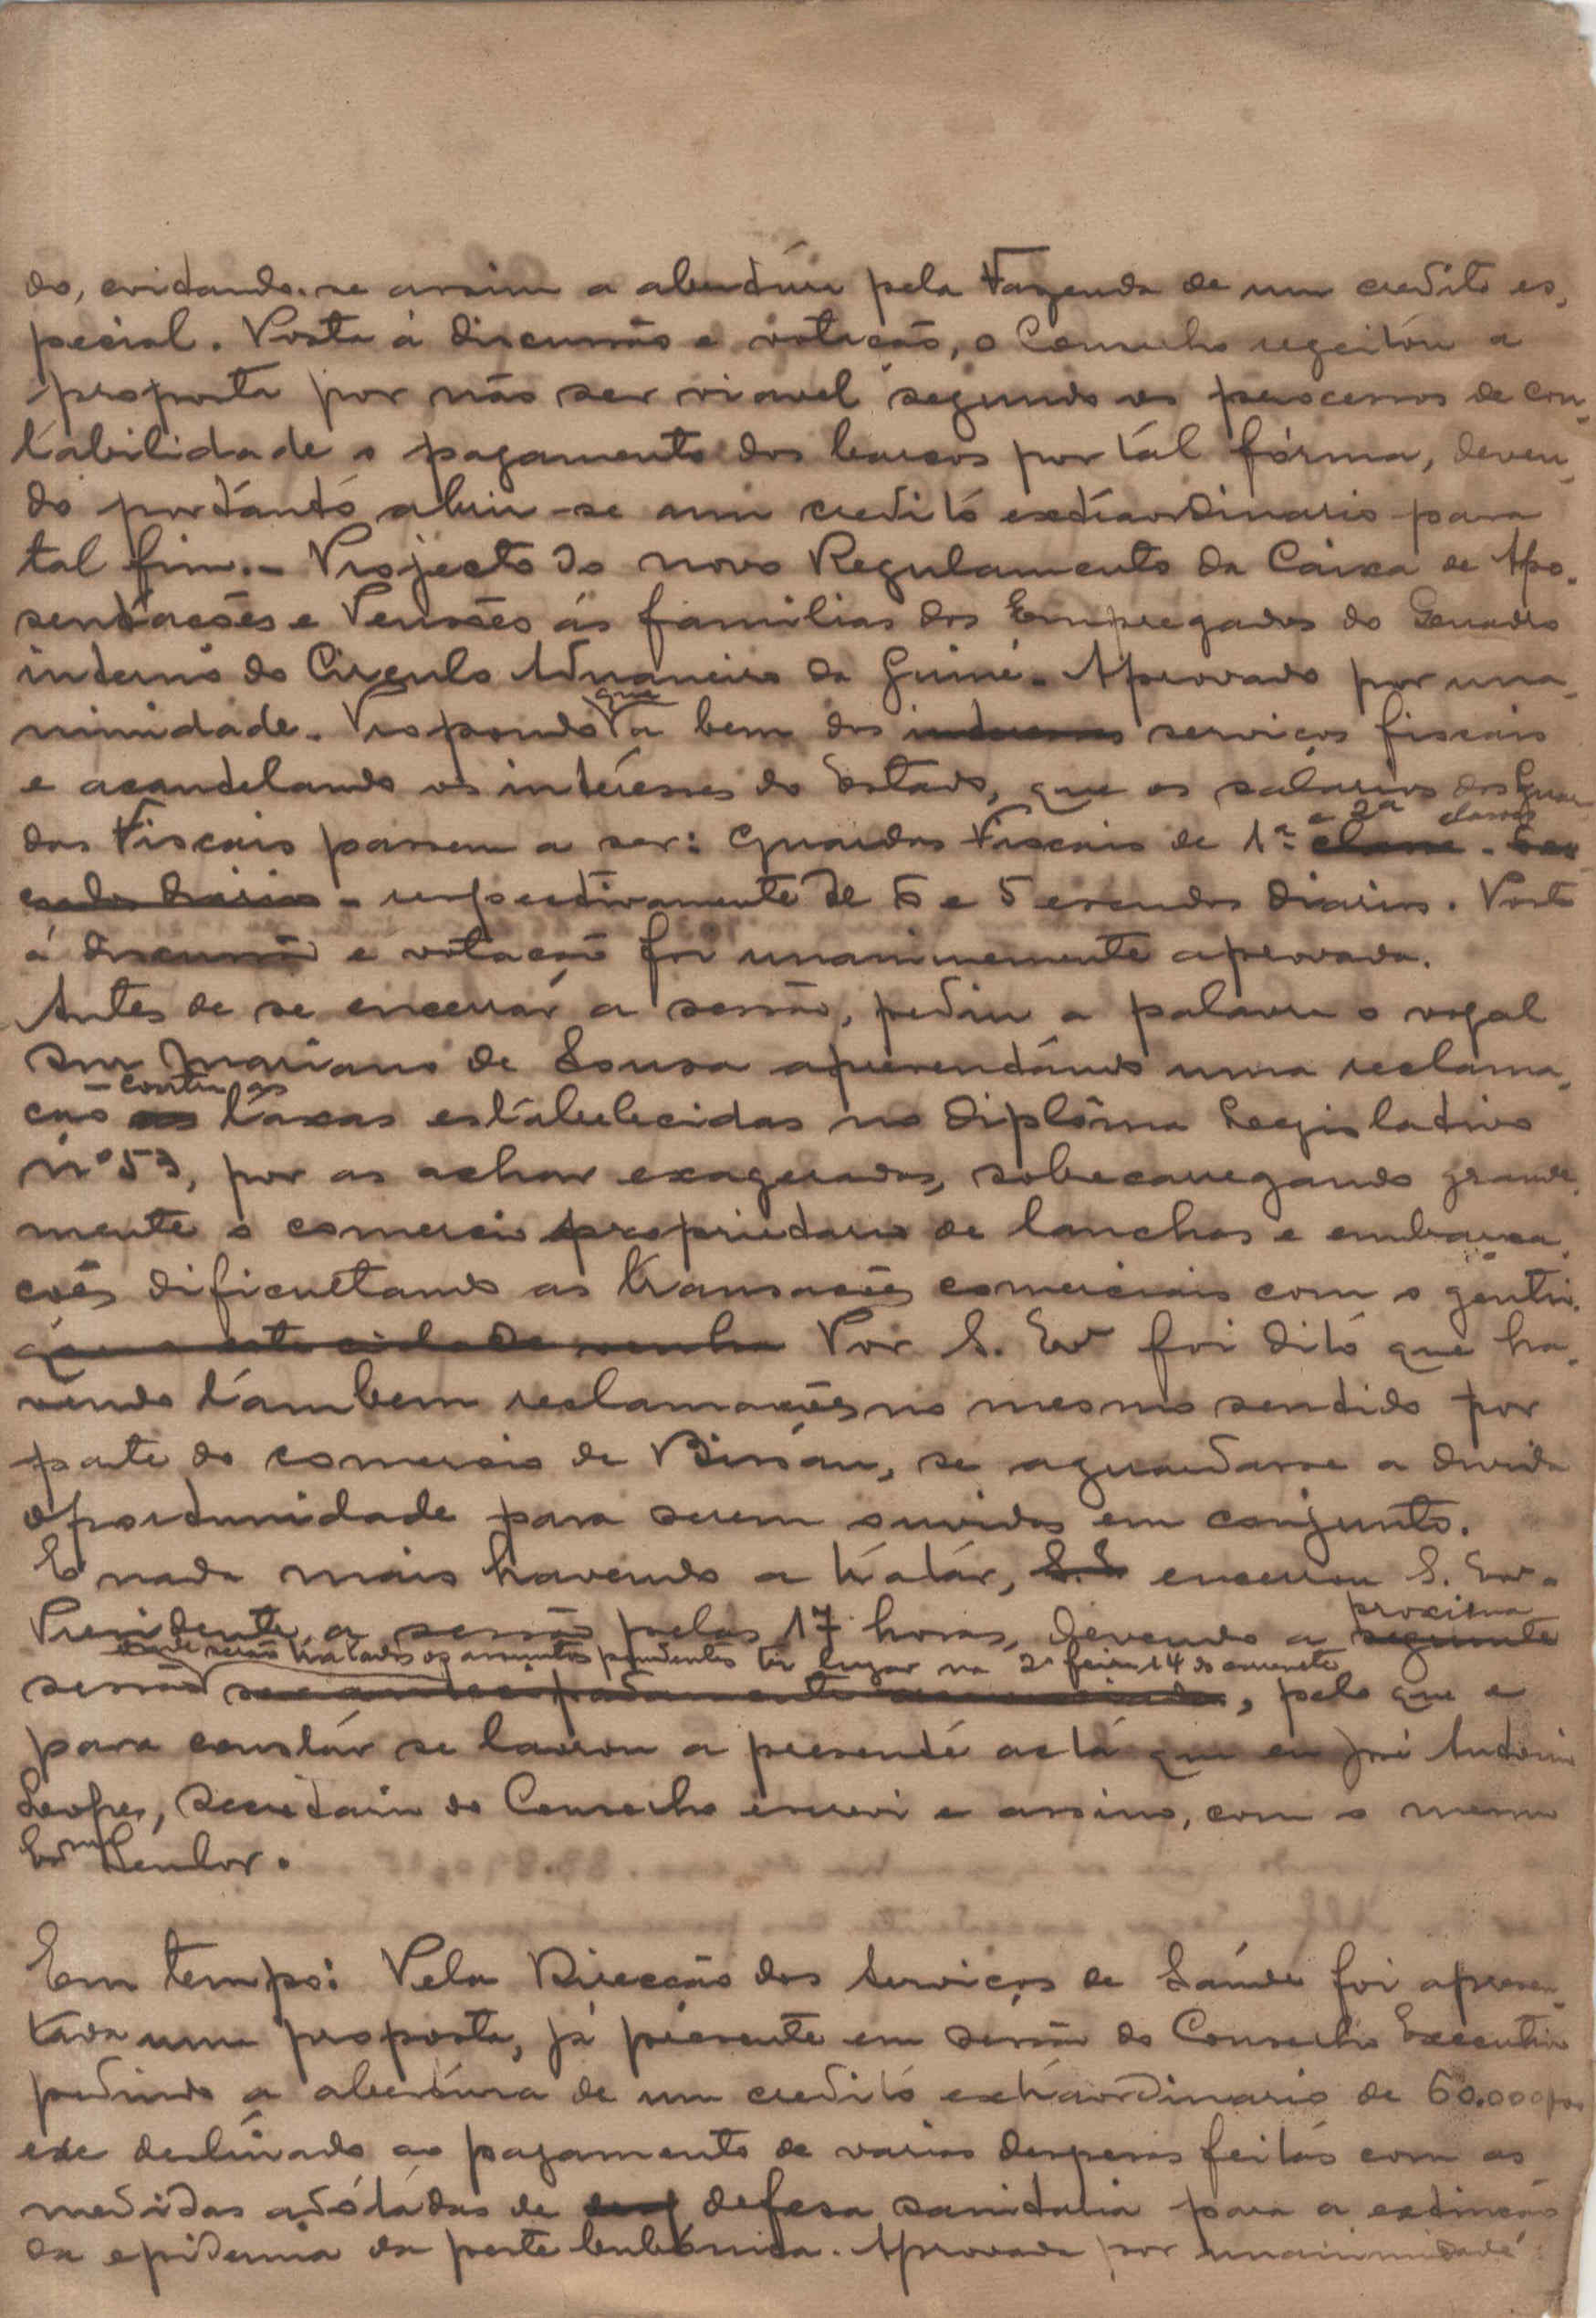 do, evitando-se assim a abertura pela Fazenda de um credito es-
pecial. Posta á discussão e votação, o Conselho regeitou a
proposta por não ser viavel segundo os processos de con-
tabilidade o pagamento dos por tál fórma, deven-
do portánto abrir-se um credito extraordinario para
tal fim.- Projecto do novo Regulamento da Caixa de Apo-
sentações e Pensões ás familias dos Empregados do Quadro
interno do Circulo Aduaneiro da Guiné. Aprovado por una-
nimidade. Propondo que a bem dos interesses serviços fiscais
e acautelando os interésses do Estado, que os salarios dos Guar-
das Fiscais passem a ser: Guardas Fiscais de 1ª e 2ª classes classe - 6 es-
cudos diarios - respectivamente de 6 e 5 escudos diarios. Posta
á discussão e votação foi unanimemente aprovada.
Antes de se encerrár a sessão, pediu a palavra o vogal
Snr Mariano de Sousa apresentándo uma reclama-
ção contra as as taxas estabelecidas no diplôma Legislativo
nº 53, por as achar exageradas, sobrecarregando grande-
mente o comercio proprietario de lanchas e embarca-
ções dificultando as transações comerciais com o gentio.
que a esta cidade venha Por S. Exª foi dito que ha-
vendo também reclamações no mesmo sentido por
parte do comercio de Bissau, se aguardasse a devida
oportunidade para serem ouvidos em conjunto.
E nada mais havendo a tratár, S.S encerrou S. Exª o
Presidente, a sessão pelas 17 horas, devendo a proxima seguinte
sessão onde serão tratados os assuntos pendentes ter lugar na 2ª feira 14 do corrente, pelo que e
para constár se lavrou a presente acta que eu José Antonio
Lopes, secretario do Conselho escrevi e assino, com o mesmo
Exmº Senhor.
Em tempo: Pela Direcção dos Serviços de Saúde foi apresen-
táda uma proposta, já presente em sessão do Conselho Executivo
pedindo a abertura de um credito extraordinario de 60.000
destinado ao pagamento de varias despesas feitas com as
medidas adótádas de defesa sanitaria para a extinção
da epidemia da peste bubónica. Aprovada por unanimidade